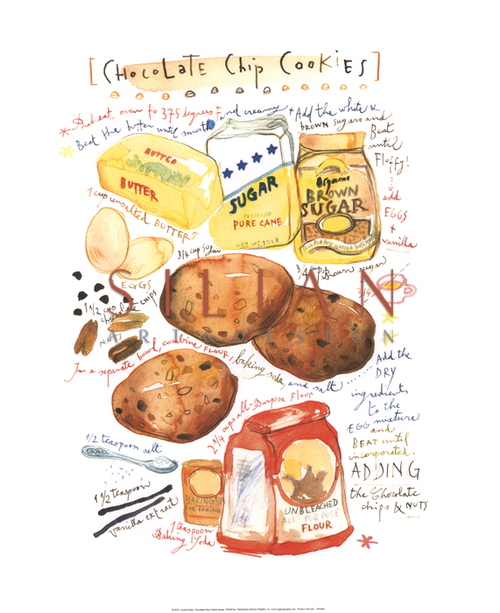 [CHocoLate Chip CookiES]
Preheat oven to 375 degrees F
Beat the butter until smooth
and creamy
Add the white &
BROWN sugars and
Beat
until
Fluffy!
add
EGGS
+
vanilla
BUTTER
BUTTER
1 cup unsalted BUTTER
SUGAR
PREMIUM
PURE CANE
Organic
BROWN
SUGAR
3/4 cup sugar
3/4 cup Brown sugar
EGGS
1 1/2 cup chocolate CHIPS
NUTS
SILIAN
In a separate bowl, combine FLOUR, baking soda, and salt
Add the
DRY
ingredients
to the
EGG mixture
and
BEAT until
incorporated.
ADDING
the Chocolate
chips & NUTS
2 1/4 cups all-Purpose Flour
1/2 teaspoon salt
1 1/2 teaspoon
vanilla extract
BAKING
1 teaspoon
Baking Soda
UNBLEACHED
ALL PURPOSE
FLOUR